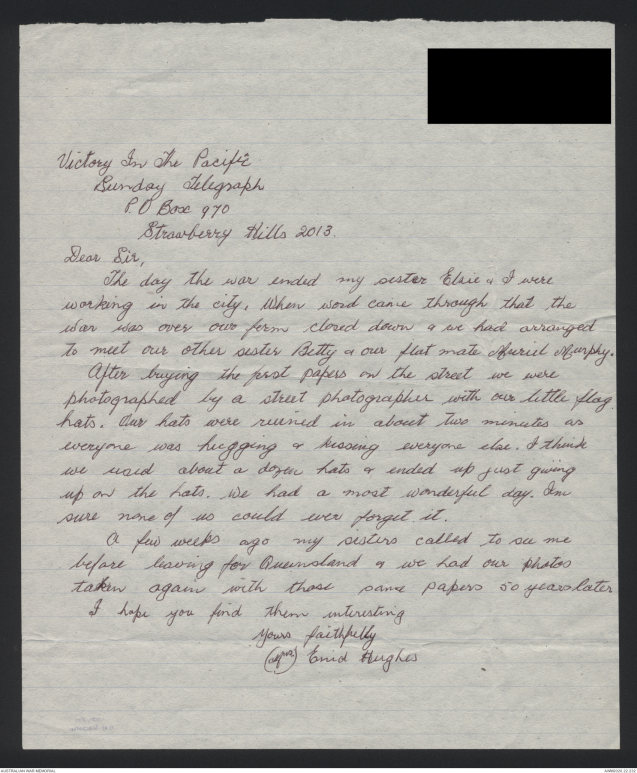 Victory In The Pacific
Sunday Telegraph
P.O Box 970
Strawberry Hills 2013.
Dear Sir,
The day the war ended my sister Elsie & I were
working in the city. When word came through that the
war was over our firm closed down & we had arranged
to meet our other sister Betty & our flat mate Muriel Murphy.
After buying the first papers on the street we were
photographed by a street photographer with our little flag
hats. Our hats were ruined in about two minutes as
everyone was hugging & kissing everyone else. I think
we used about a dozen hats & ended up just giving
up on the hats. We had a most wonderful day. Im
sure none of us could ever forget it.
A few weeks ago my sisters called to see me
before leaving for Queensland & we had our photos
taken again with those same papers 50 years later
I hope you find them interesting
Yours faithfully
(Mrs) Enid Hughes
AUSTRALIAN WAR MEMORIAL